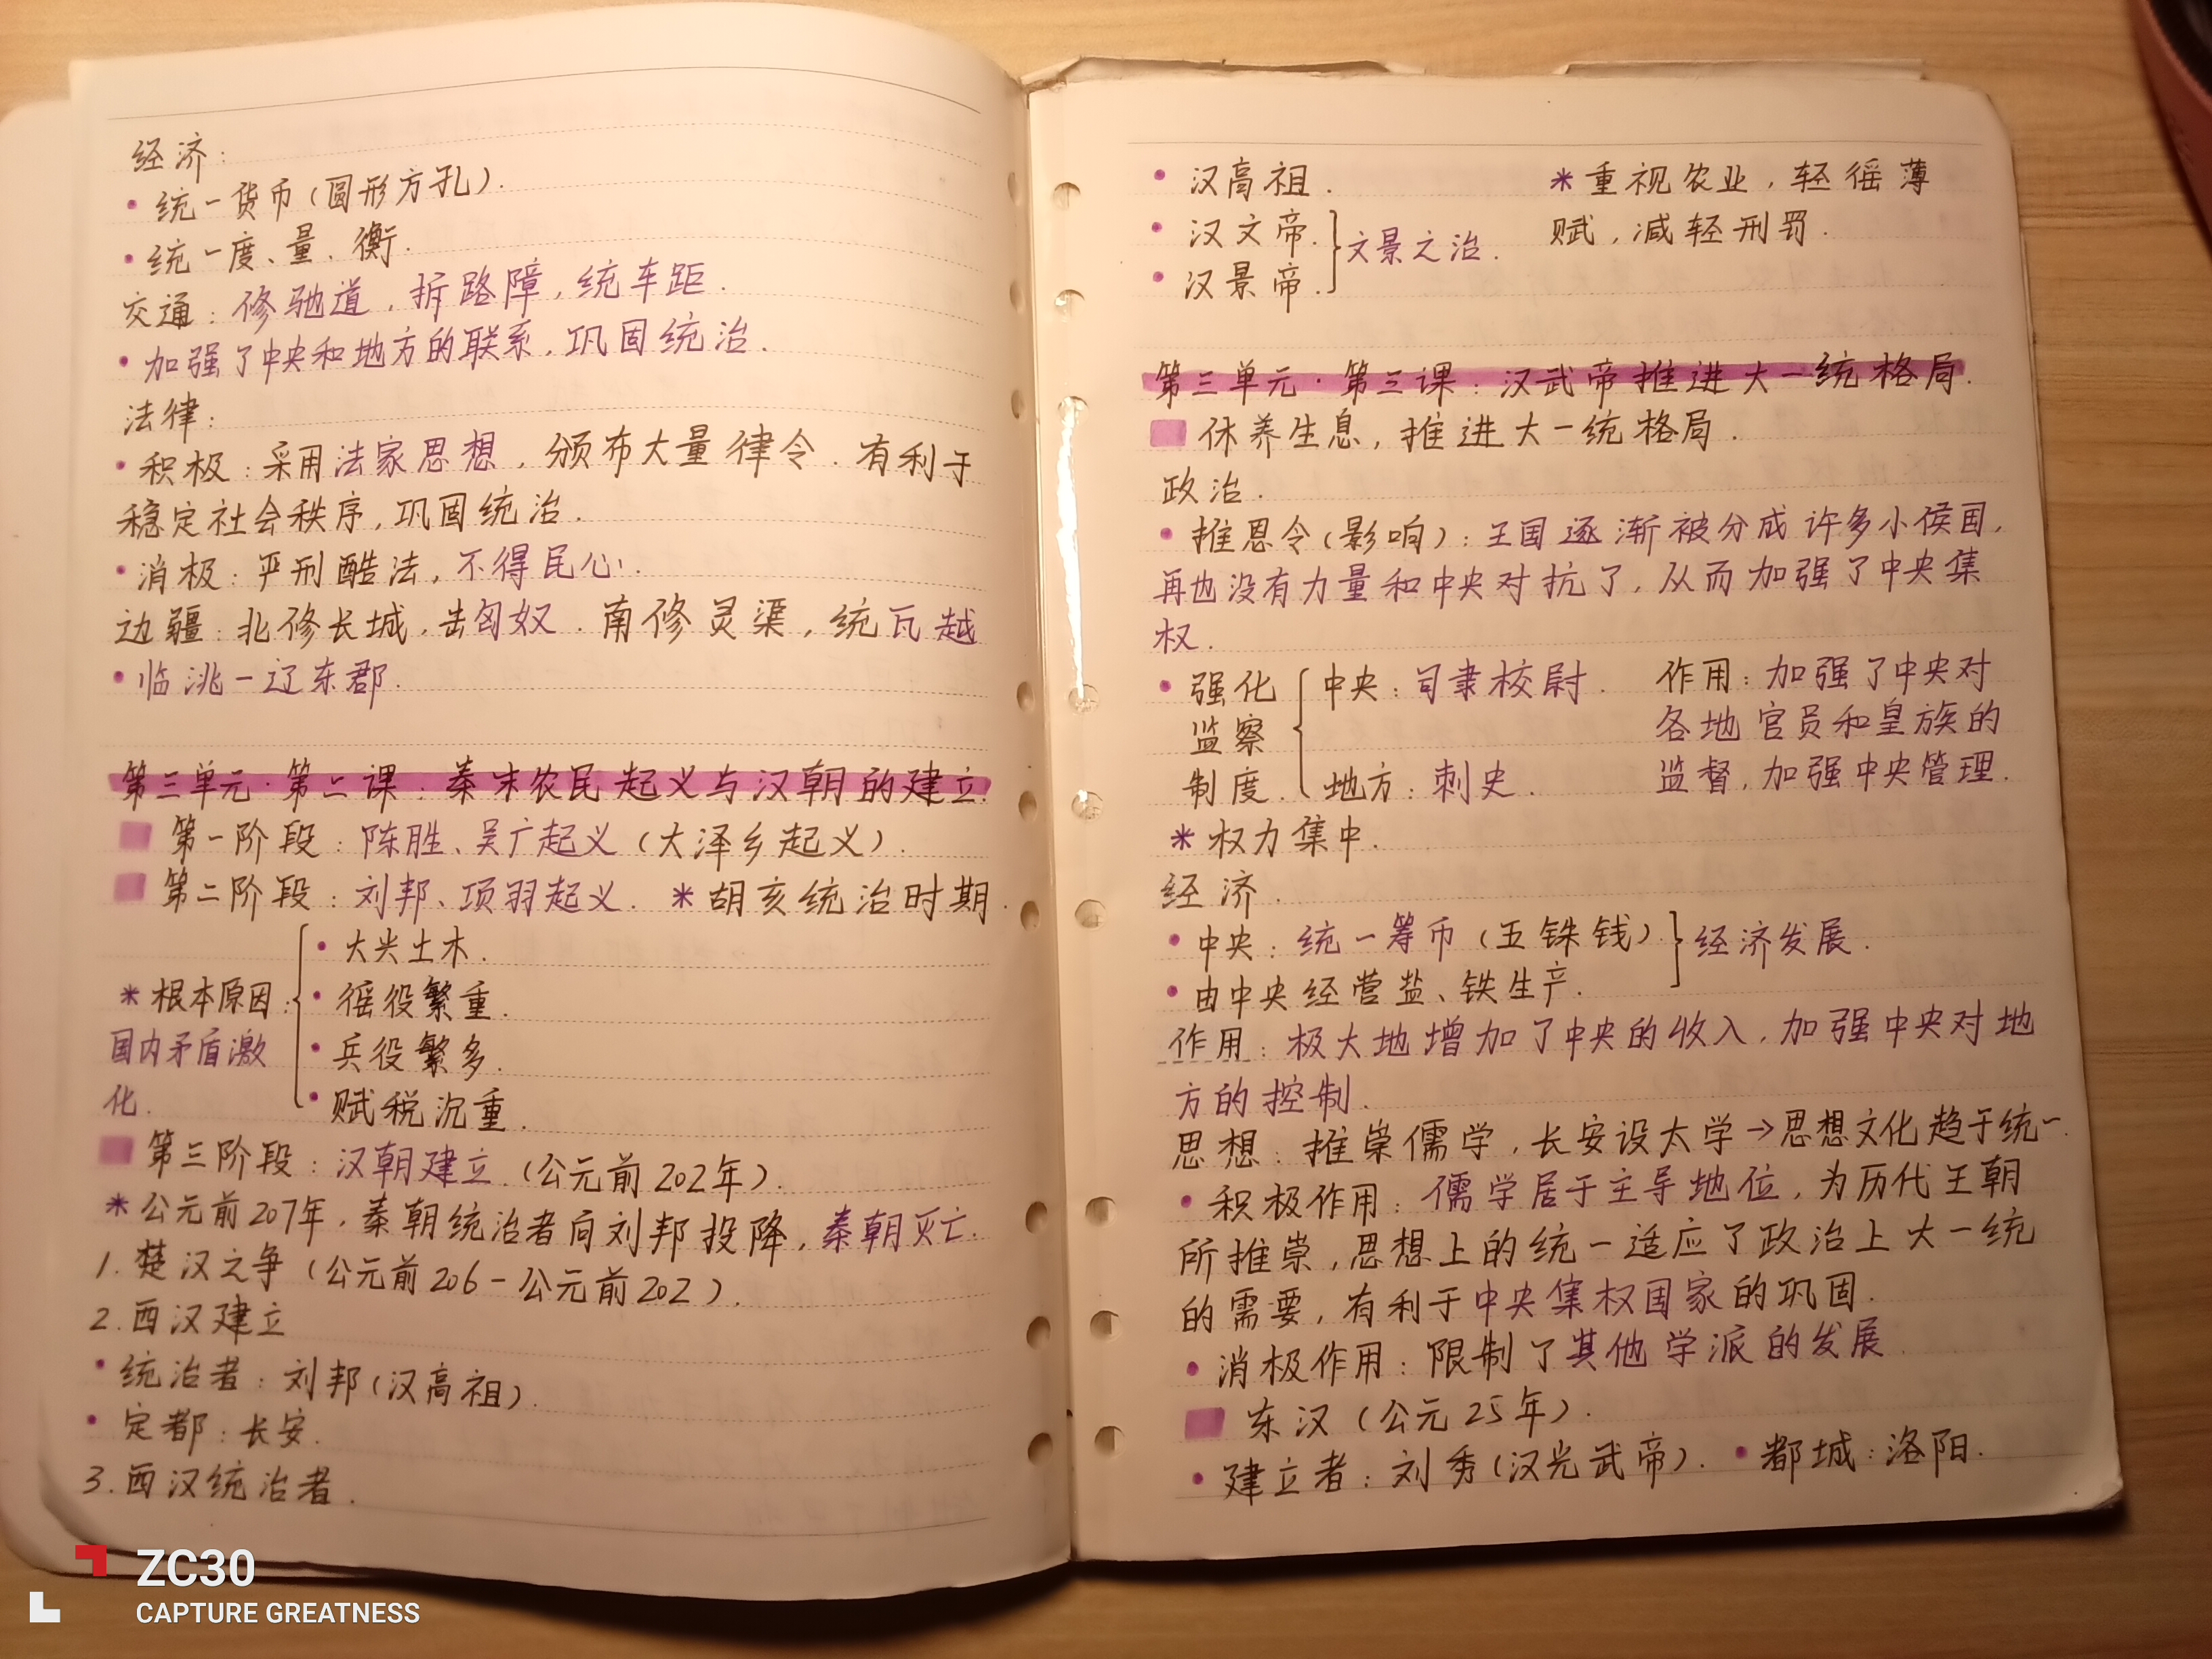 经济：
• 统一货币（圆形方孔）.
• 统一度、量、衡.
交通：修驰道，拆路障，统车距.
• 加强了中央和地方的联系，巩固统治.
法律：
• 积极：采用法家思想，颁布大量律令.有利于
稳定社会秩序，巩固统治.
• 消极：严刑酷法，不得民心.
边疆：北修长城，击匈奴.南修灵渠，统瓦越
• 临洮－辽东郡.
第三单元·第二课：秦末农民起义与汉朝的建立.
第一阶段：陈胜、吴广起义（大泽乡起义）.
第二阶段：刘邦、项羽起义. *胡亥统治时期.
• 大兴土木.
*根本原因： • 徭役繁重.
国内矛盾激 • 兵役繁多.
化. • 赋税沉重.
第三阶段：汉朝建立.（公元前202年）.
*公元前207年，秦朝统治者向刘邦投降，秦朝灭亡.
1.楚汉之争（公元前206－公元前202）.
2.西汉建立
• 统治者：刘邦（汉高祖）.
• 定都：长安.
3.西汉统治者.
• 汉高祖. *重视农业，轻徭薄
• 汉文帝. 文景之治. 赋，减轻刑罚.
• 汉景帝.
第三单元·第三课：汉武帝推进大一统格局.
休养生息，推进大一统格局.
政治.
• 推恩令（影响）：王国逐渐被分成许多小侯国，
再也没有力量和中央对抗了，从而加强了中央集
权.
• 强化 中央：司隶校尉. 作用：加强了中央对
监察 各地官员和皇族的
制度. 地方：刺史. 监督，加强中央管理.
*权力集中.
经济.
• 中央：统一筹币（五铢钱）. 经济发展.
• 由中央经营盐、铁生产.
作用：极大地增加了中央的收入，加强中央对地
方的控制.
思想：推崇儒学，长安设太学→思想文化趋于统一.
• 积极作用：儒学居于主导地位，为历代王朝
所推崇，思想上的统一适应了政治上大一统
的需要，有利于中央集权国家的巩固.
• 消极作用：限制了其他学派的发展.
东汉（公元25年）.
• 建立者：刘秀（汉光武帝）. • 都城：洛阳.
ZC30
CAPTURE GREATNESS